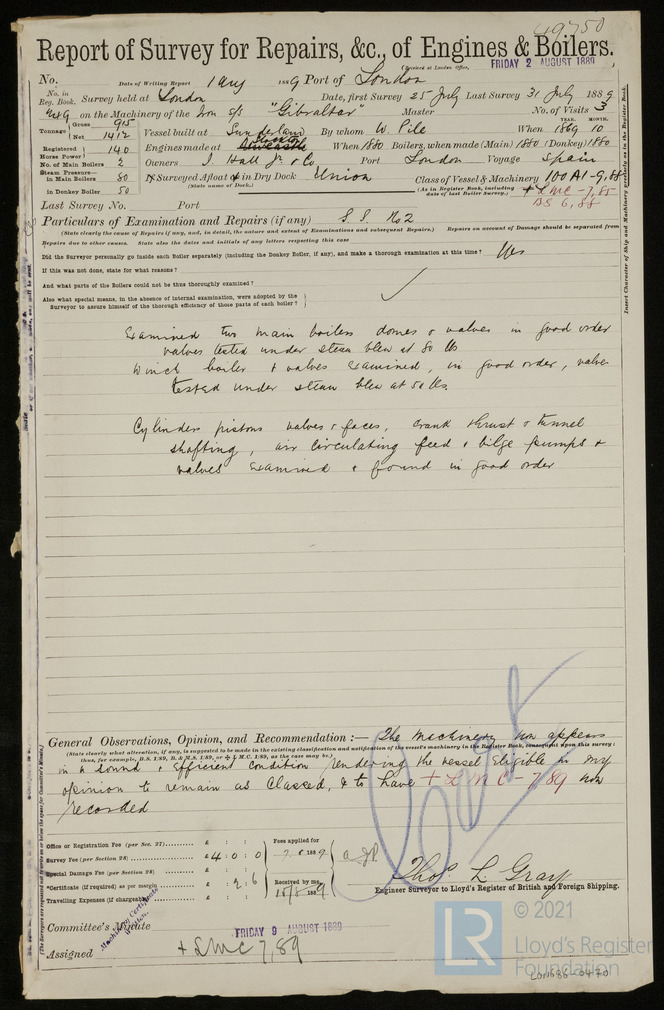 49750
Report of Survey for Repairs, &c., of Engines & Boilers.
(Received at London Office, FRIDAY 2 AUGUST 1889)
No. Date of Writing Report 1 Aug 1889 Port of London
No. in Reg. Book. Survey held at London Date, first Survey 25 July Last Survey 31 July 1889
on the Machinery of the Iron s/s "Gibraltar" Master No. of Visits 3
Tonnage Gross 915 Net 1412 Vessel built at Sunderland By whom W. Pile When 1869 10 YEAR. MONTH.
Registered Horse Power 140 Engines made at Stockton When 1880 Boilers, when made (Main) 1880 (Donkey) 1880
No. of Main Boilers 2 Owners J. Hall Jr. & Co Port London Voyage Spain
Steam Pressure— in Main Boilers 80 If Surveyed Afloat & in Dry Dock Union Class of Vessel & Machinery 100 A1-9,88
in Donkey Boiler 50 (State name of Dock.) (As in Register Book, including date of last Boiler Survey.) + LMC-7,85
BS 6,88
Last Survey No. Port
Particulars of Examination and Repairs (if any) S.S. No 2
(State clearly the cause of Repairs if any, and, in detail, the nature and extent of Examinations and subsequent Repairs.) Repairs on account of Damage should be separated from
Repairs due to other causes. State also the dates and initials of any letters respecting this case
Did the Surveyor personally go inside each Boiler separately (including the Donkey Boiler, if any), and make a thorough examination at this time? Yes
If this was not done, state for what reasons?
And what parts of the Boilers could not be thus thoroughly examined?
Also what special means, in the absence of internal examination, were adopted by the
Surveyor to assure himself of the thorough efficiency of those parts of each boiler?
Examined two main boilers domes & valves in good order
valves tested under steam blew at 80 lbs
Winch boiler & valves examined, in good order, valve
tested under steam blew at 50 lbs.
Cylinders pistons valves & faces, crank thrust & tunnel
shafting, air circulating feed & bilge pumps &
valves examined & found in good order
General Observations, Opinion, and Recommendation:— The machinery now appears
(State clearly what alteration, if any, is suggested to be made in the existing classification and notification of the vessel's machinery in the Register Book, consequent upon this survey:
thus, for example, B.S. 1/89, B. & M.S. 1/89, or + L M.C. 1/89, as the case may be.)
in a sound & efficient condition rendering the vessel eligible in my
opinion to remain as Classed, & to have + LMC-7,89 now
recorded
Office or Registration Fee (per Sec. 27) £ : : Fees applied for
Survey Fee (per Section 28) £ 4 : 0 : 0 1889
Special Damage Fee (per Section 28) £ : :
*Certificate (if required) as per margin £ : 2 : 6 Received by me, 1889
Travelling Expenses (if chargeable) £ : :
Thos. L. Gray
Engineer Surveyor to Lloyd's Register of British and Foreign Shipping.
Committee's Minute FRIDAY 9 AUGUST 1889
Assigned + LMC 7,89
Machinery Certificate Written.
Insert Character of Ship and Machinery precisely as in the Register Book.
LR © 2021
Lloyd's Register
Foundation